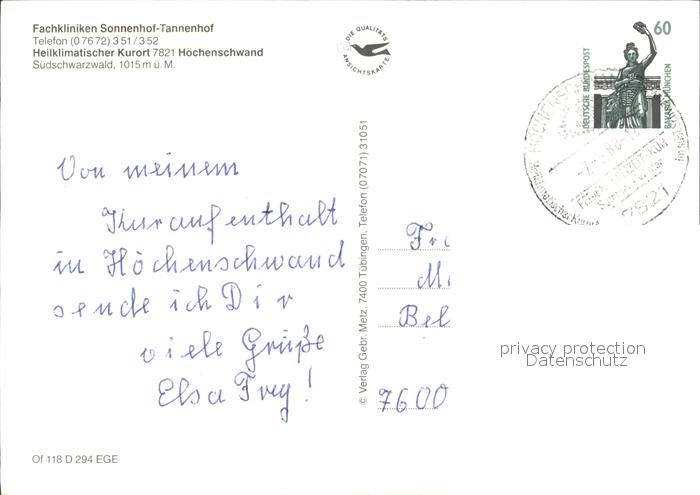 Fachkliniken Sonnenhof-Tannenhof
Telefon (0 76 72) 3 51 / 3 52
Heilklimatischer Kurort 7821 Höchenschwand
Südschwarzwald, 1015 m ü. M.
DIE QUALITÄTS
ANSICHTSKARTE
60
DEUTSCHE BUNDESPOST
BAVARIA MÜNCHEN
7821
Von meinem
Kuraufenthalt
in Höchenschwand
sende ich Dir
viele Grüße
Elsa Frey!
© Verlag Gebr. Metz, 7400 Tübingen, Telefon (07071) 31051
Bel
7600
privacy protection
Datenschutz
Of 118 D 294 EGE